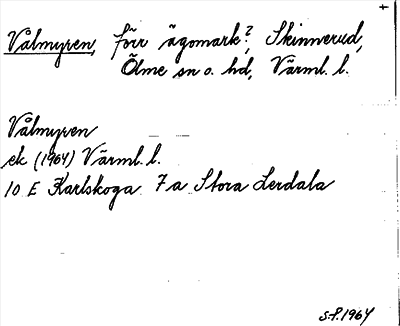 Valmyren, förr ägomark?, Skinnerud,
Ölme sn o. hd, Värml. l.
Valmyren
ek (1964) Värml. l.
10 E Karlskoga 7 a Stora Lerdala
S.F. 1964